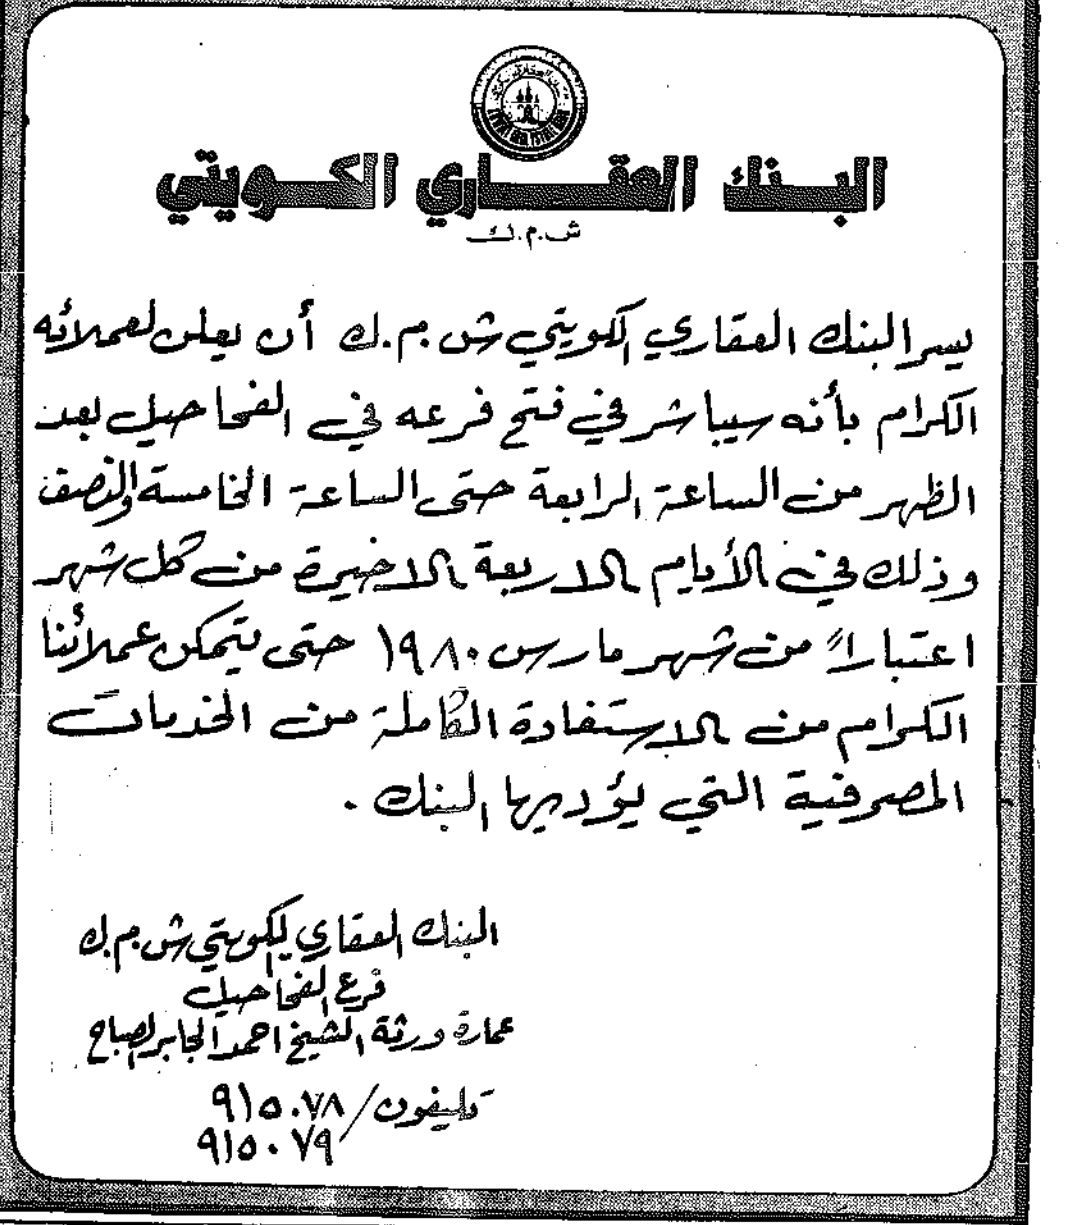 البنك العقاري الكويتي
ش.م.ك
يسر البنك العقاري الكويتي ش.م.ك أن يعلن لعملائه
الكرام بأنه سيباشر في فتح فرعه في الفحاحيل بعد
الظهر من الساعة الرابعة حتى الساعة الخامسة والنصف
وذلك في الأيام الاربعة الاخيرة من كل شهر
اعتباراً من شهر مارس ١٩٨٠ حتى يتمكن عملائنا
الكرام من الاستفادة الكاملة من الخدمات
المصرفية التي يؤديها البنك .
البنك العقاري الكويتي ش.م.ك
فرع الفحاحيل
عمارة ورثة الشيخ احمد الجابر الصباح
تليفون / ٩١٥٠٧٨
٩١٥٠٧٩